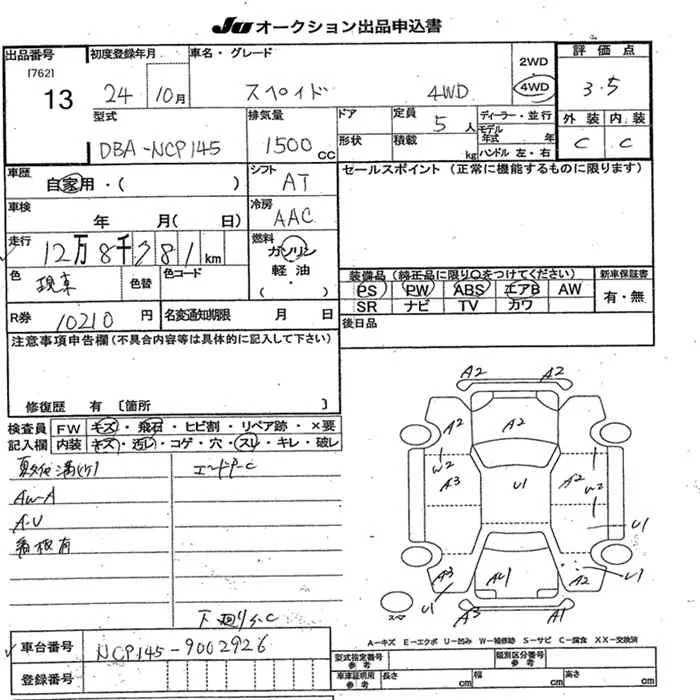 JU オークション出品申込書
出品番号 初度登録年月 車名・グレード 2WD 4WD 評価点
[762]
13 24 10月 スペイド 4WD 3.5
型式 排気量 ドア 定員 5人 ディーラー・並行 外装 内装
DBA-NCP145 1500cc 形状 積載 kg モデル年式 年 ハンドル 左・右 C C
車歴 自家用・( ) シフト AT セールスポイント (正常に機能するものに限ります)
車検 年 月( 日) 冷房 AAC
走行 12万8千781km 燃料 ガソリン
色 色替 色コード 軽油 ( ・ )
装備品 (純正品に限り○をつけてください) 新車保証書
PS PW ABS エアB AW 有・無
SR ナビ TV カワ
R券 10210円 名変通知期限 月 日 後日品
注意事項申告欄(不具合内容等は具体的に記入して下さい)
修復歴 有 〔箇所 〕
検査員 FW キズ・飛石・ヒビ割・リペア跡・×要
記入欄 内装 キズ・汚レ・コゲ・穴・スレ・キレ・破レ
AW-A
A-U
看板有
下廻りS.C
A2 A2
A2 A2
W2 A3 U1 A2 W2
U1
A3 U1 AU1 A2 U1
A3 A1
スペア
A-キズ E-エクボ U-凹み W-補修跡 S-サビ C-腐食 XX-交換済
車台番号 NCP145-9002926
登録番号
型式指定番号 参考 類別区分番号 参考
車庫証明用 参考 長さ cm 幅 cm 高さ cm